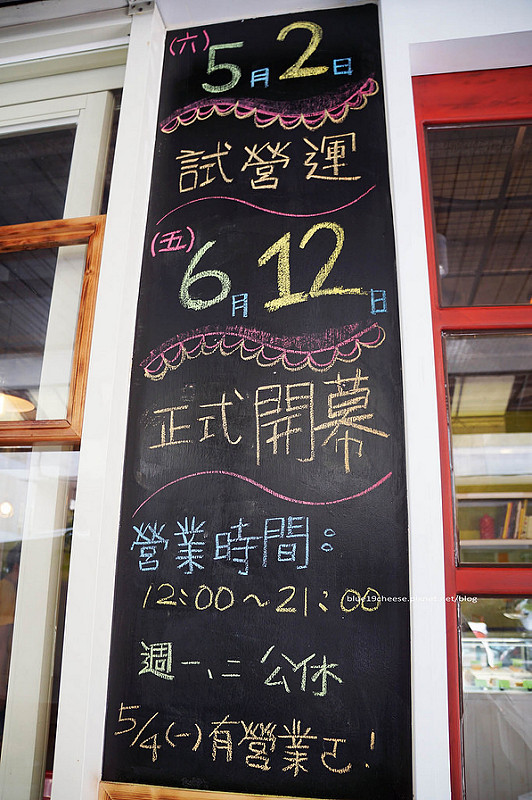 (六)5月2日
試營運
(五)6月12日
正式開幕
營業時間:
12:00~21:00
週一、二 公休
5/4(一)有營業己!